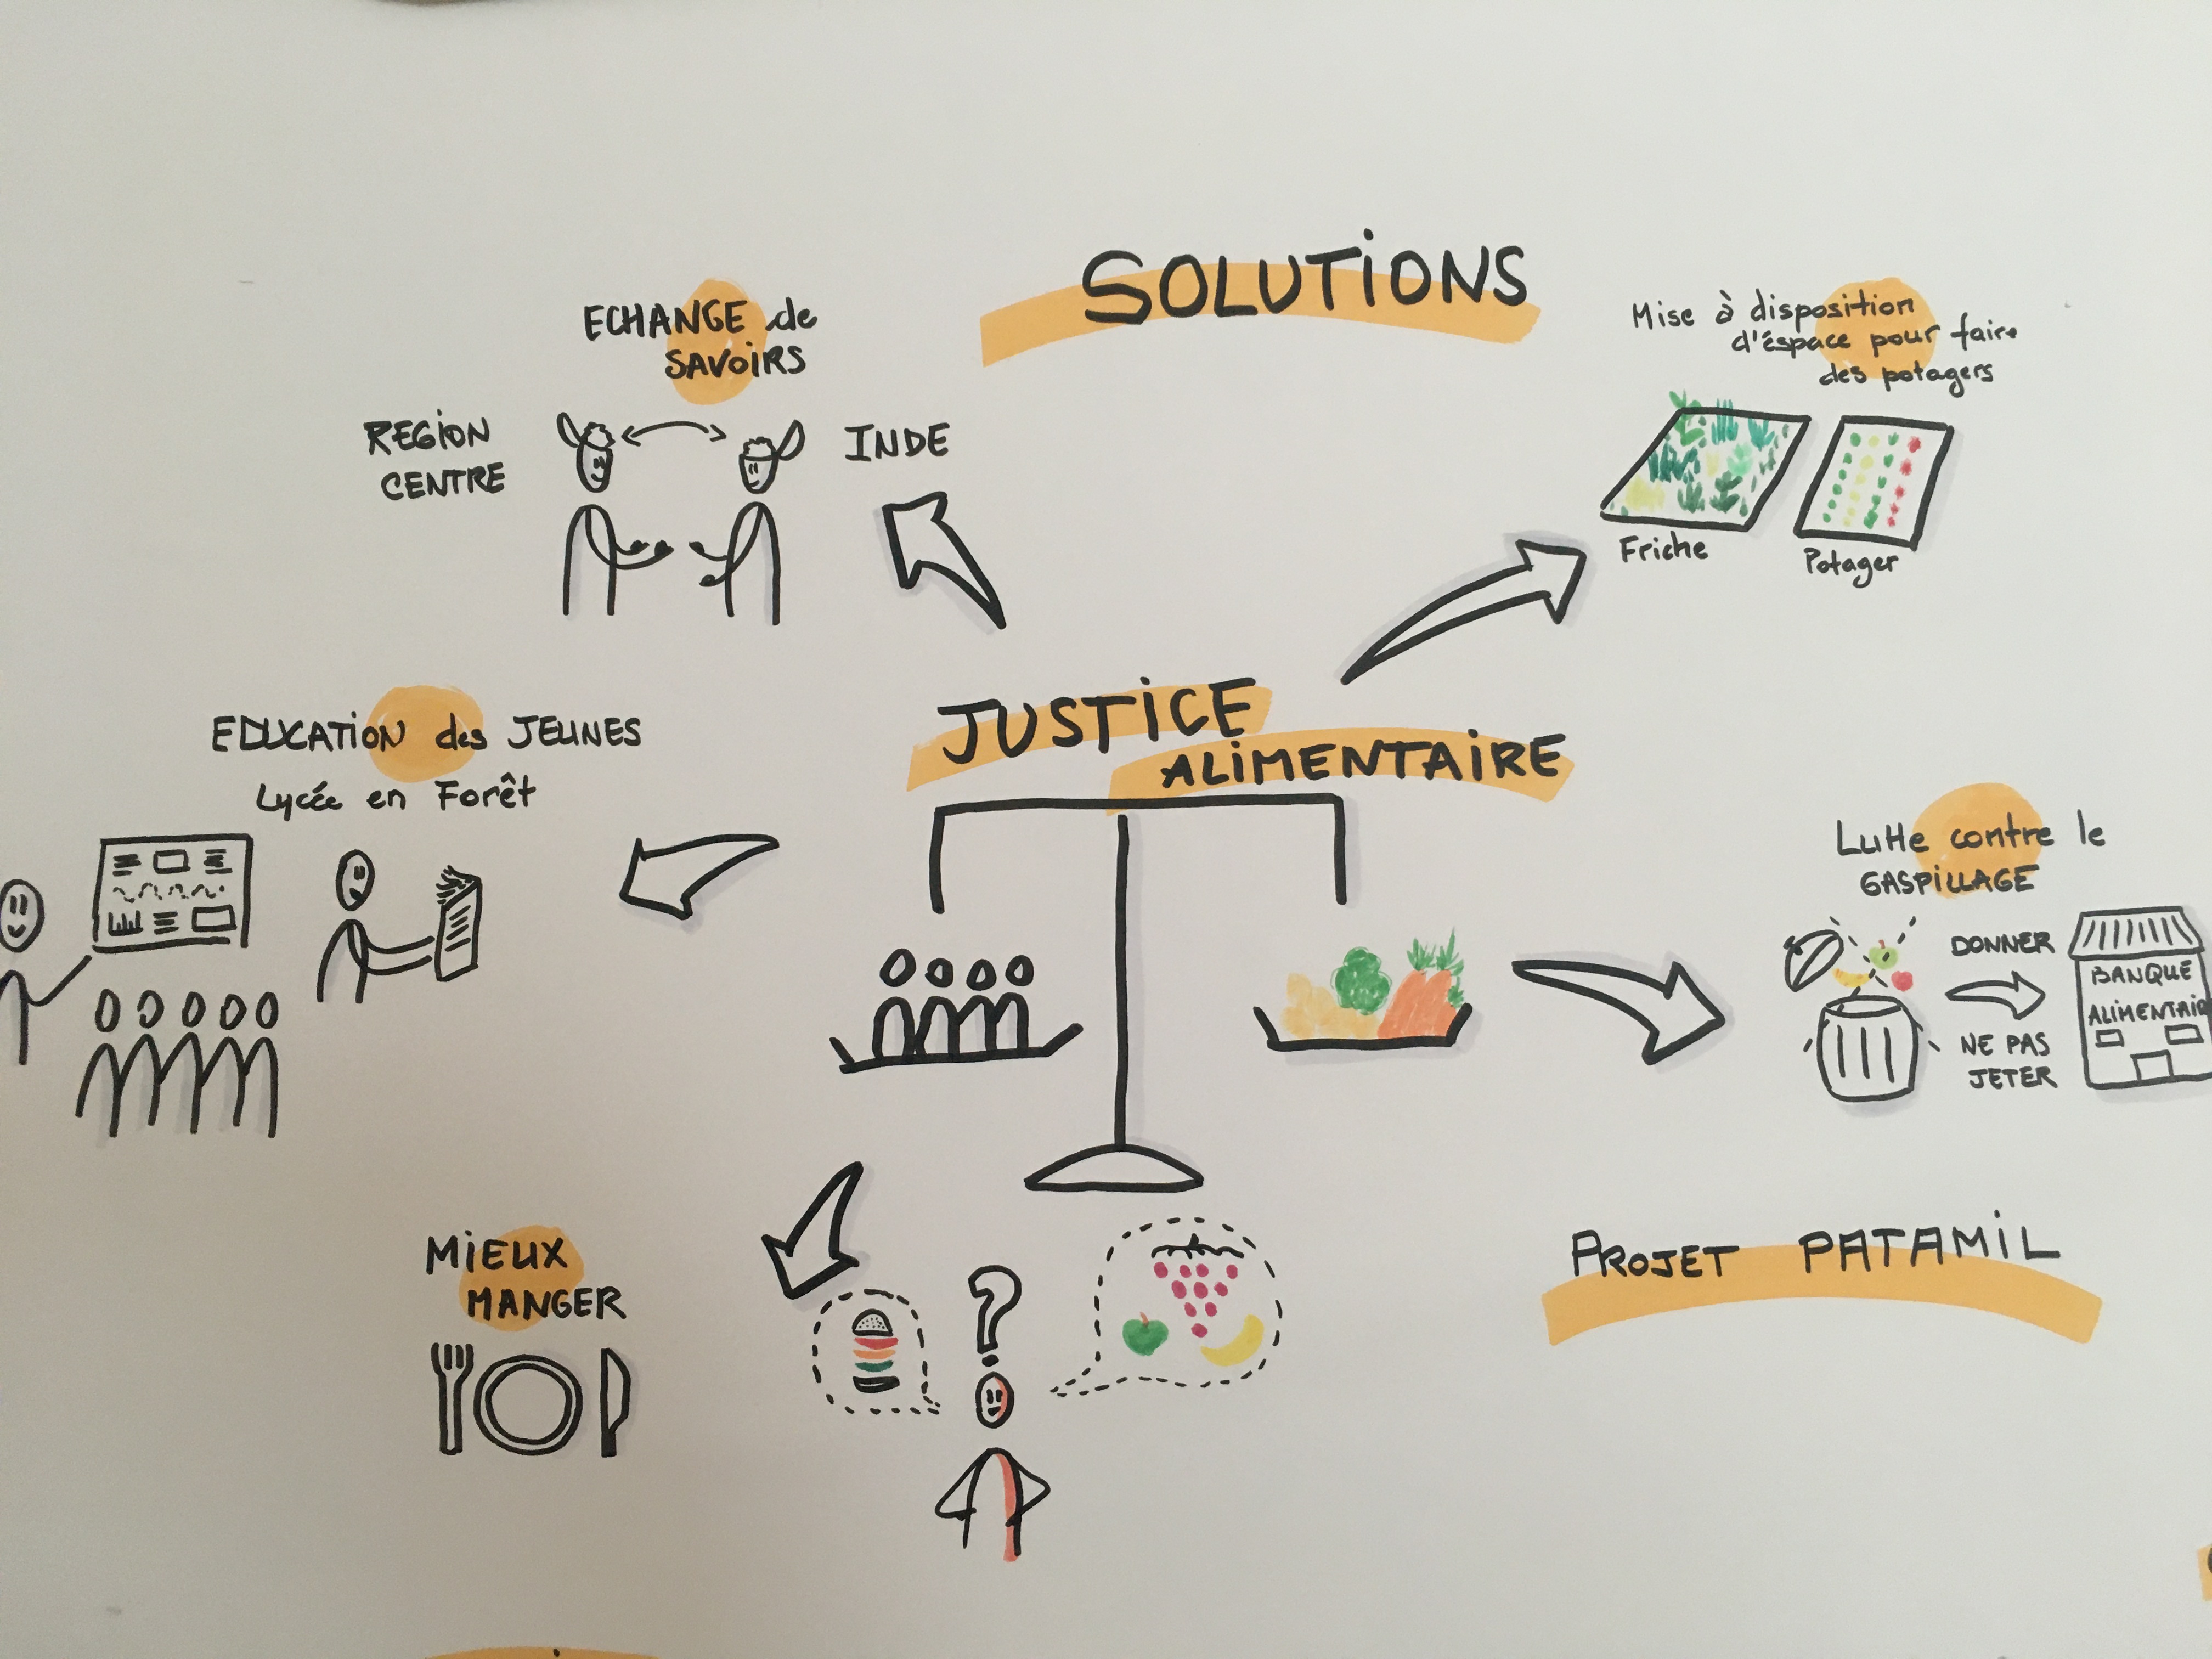 SOLUTIONS
ECHANGE de
SAVOIRS
REGION
CENTRE
INDE
Mise à disposition
d'éspace pour faire
des potagers
Friche
Potager
JUSTICE
ALIMENTAIRE
EDUCATION des JEUNES
Lycée en Forêt
Lutte contre le
GASPILLAGE
DONNER
NE PAS
JETER
BANQUE
ALIMENTAIR
MIEUX
MANGER
?
PROJET PATAMIL